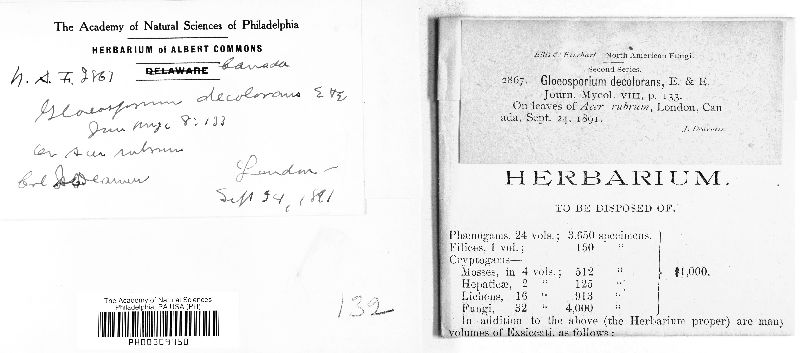 The Academy of Natural Sciences of Philadelphia
HERBARIUM of ALBERT COMMONS
DELAWARE Canada
N. A. F. 2867
Gloeosporium decolorans E & E
Jour Myc 8: 133
on Acer rubrum
Col J Dearness
London
Sept 24, 1891
The Academy of Natural Sciences
Philadelphia, PA USA (PH)
132
Ellis & Everhart North American Fungi.
Second Series.
2867. Gloeosporium decolorans, E. & E.
Journ. Mycol. VIII, p. 133.
On leaves of Acer rubrum, London, Can
ada, Sept. 24, 1891.
J. Dearness
HERBARIUM.
TO BE DISPOSED OF.
Phænogams, 24 vols.; 3,650 specimens.
Filices, 1 vol.; 150 "
Cryptogams—
Mosses, in 4 vols.; 512 "
Hepaticæ, 2 " 125 "
Lichens, 16 " 913 "
Fungi, 52 " 4,000 "
$1,000.
In addition to the above (the Herbarium proper) are many
volumes of Exsiccati, as follows: